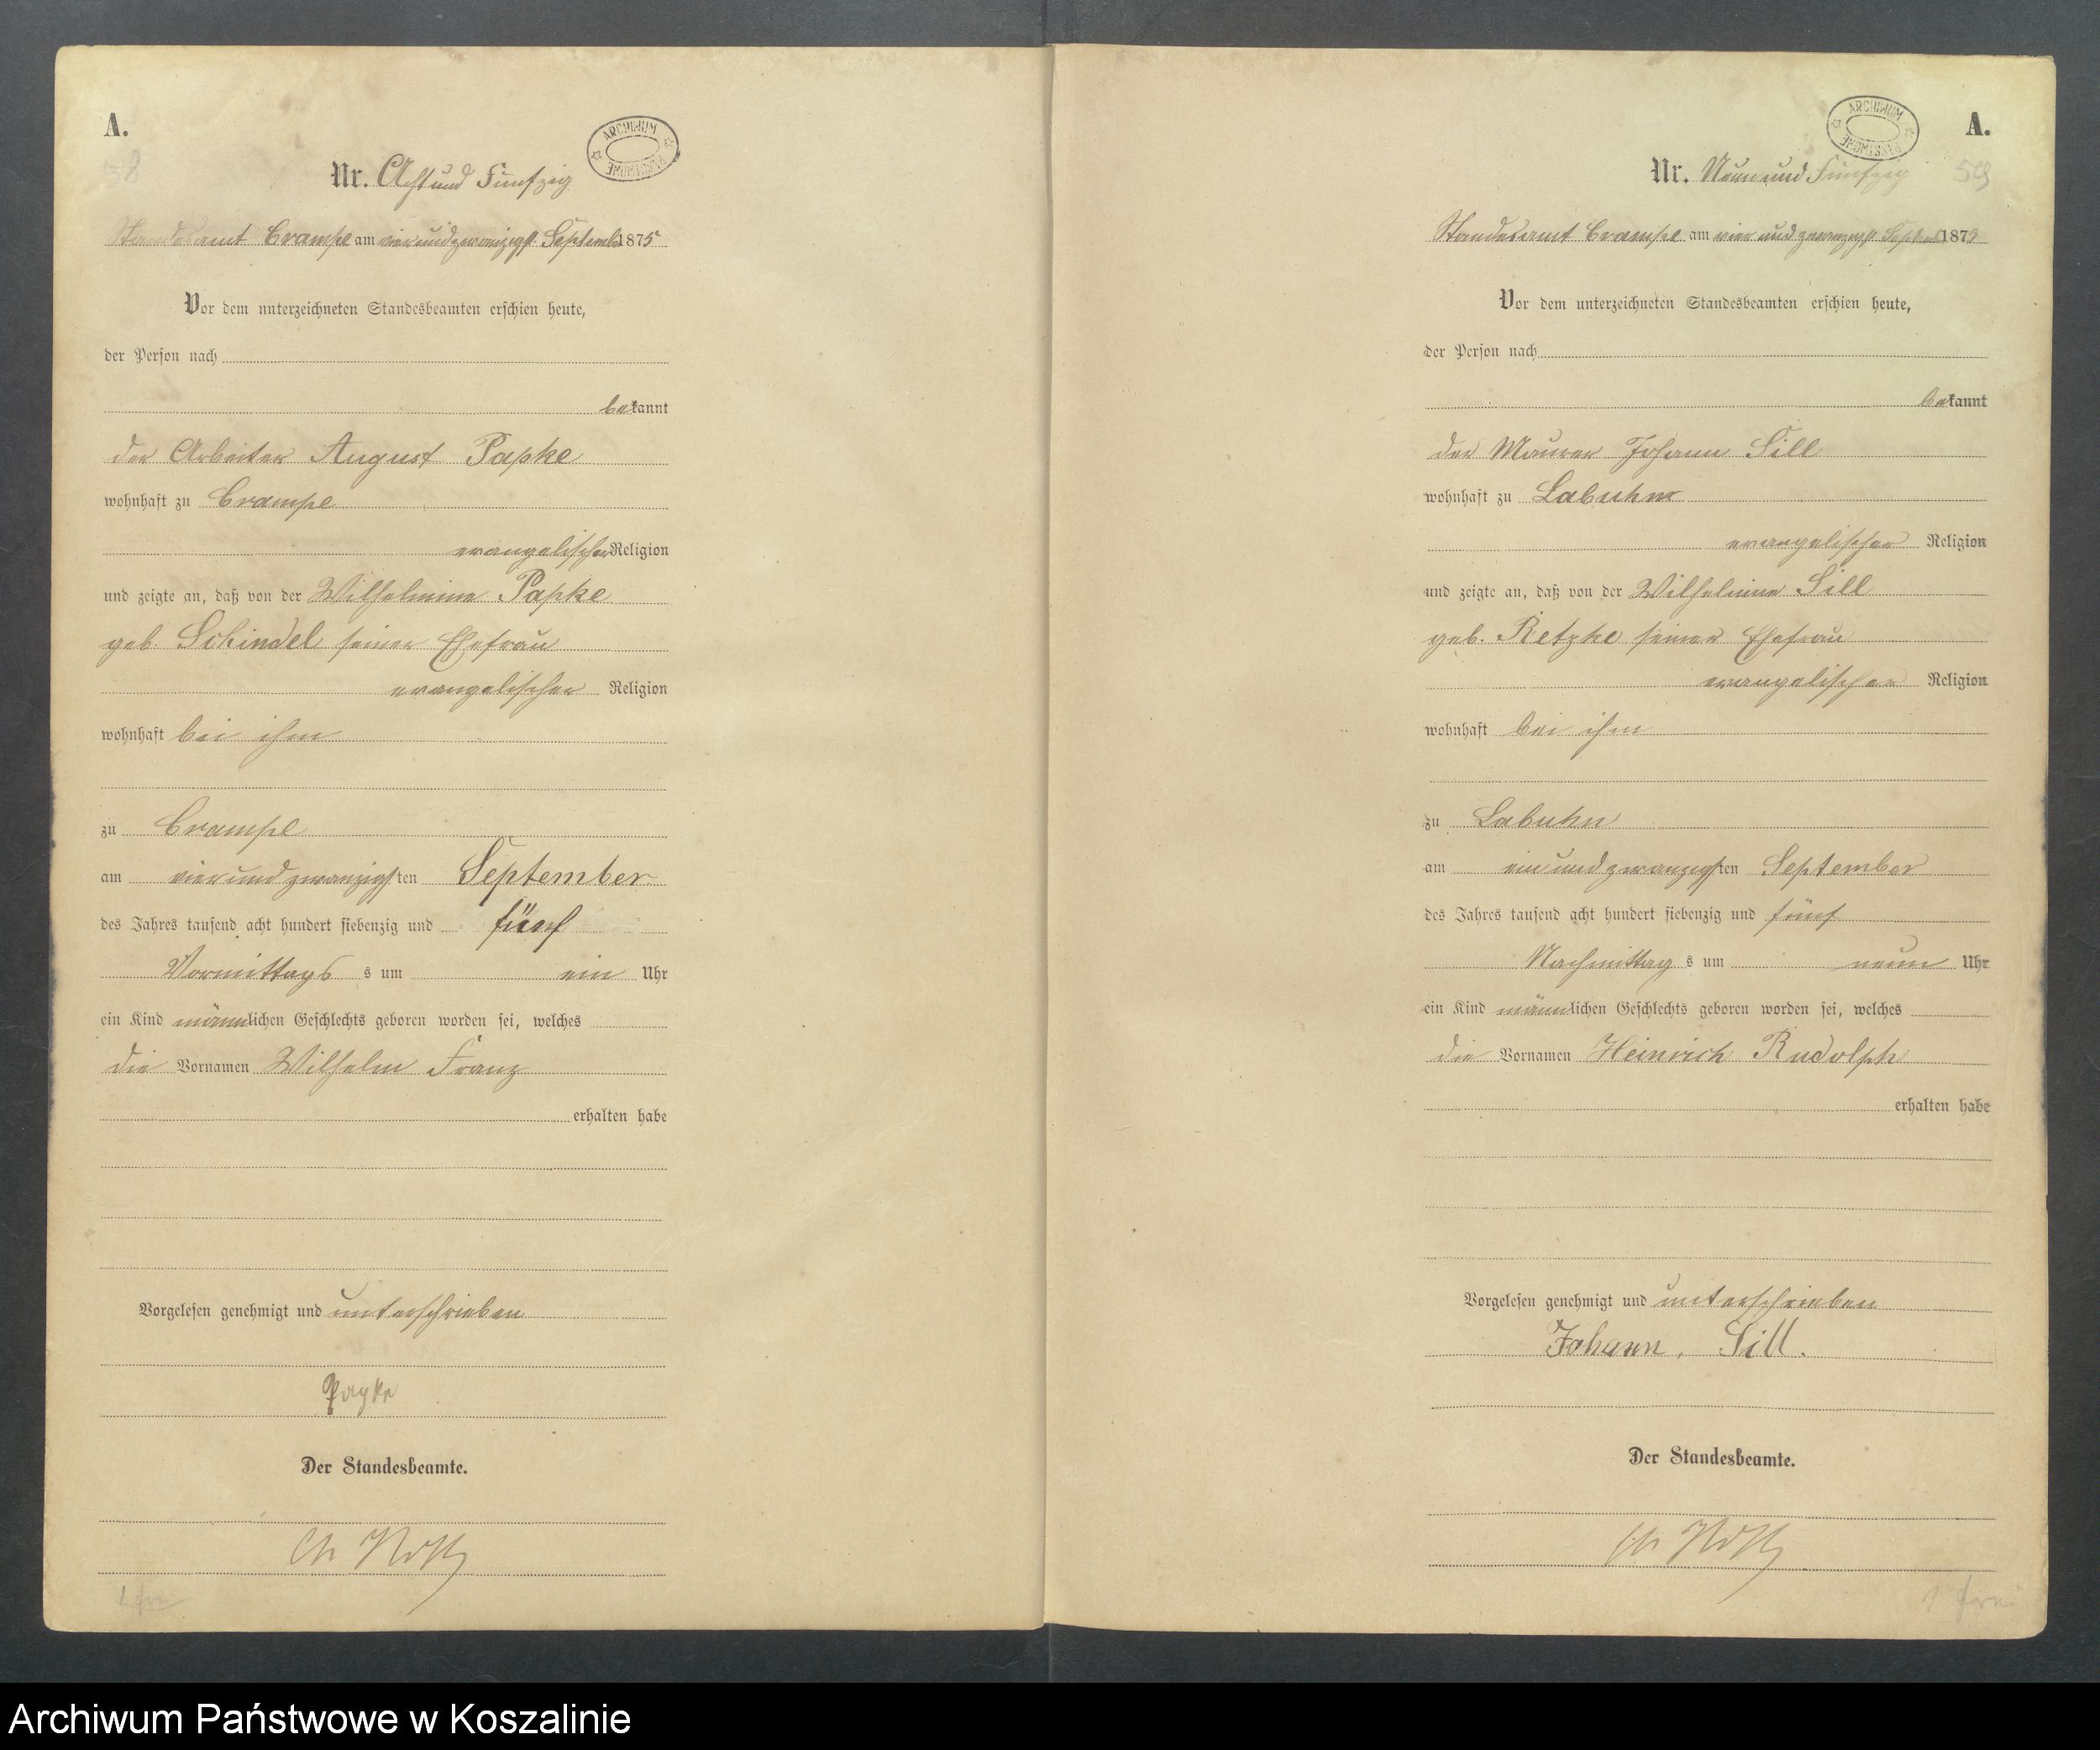 A.
58
ARCHIWUM PAŃSTWOWE
Nr. Acht und Fünfzig
Standesamt Crampe am vier und zwanzigst. Septemb. 1875
Vor dem unterzeichneten Standesbeamten erschien heute,
der Person nach
bekannt
der Arbeiter August Papke
wohnhaft zu Crampe
evangelischer Religion
und zeigte an, daß von der Wilhelmine Papke
geb. Schindel seiner Ehefrau
evangelischer Religion
wohnhaft bei ihm
zu Crampe
am vier und zwanzigsten September
des Jahres tausend acht hundert siebenzig und fünf
Vormittags s um ein Uhr
ein Kind männlichen Geschlechts geboren worden sei, welches
die Vornamen Wilhelm Franz
erhalten habe
Vorgelesen genehmigt und unterschrieben
Papke
Der Standesbeamte.
A.
59
ARCHIWUM PAŃSTWOWE
Nr. Neun und Fünfzig
Standesamt Crampe am vier und zwanzigst. Septemb. 1875
Vor dem unterzeichneten Standesbeamten erschien heute,
der Person nach
bekannt
der Maurer Johann Sill
wohnhaft zu Labuhn
evangelischer Religion
und zeigte an, daß von der Wilhelmine Sill
geb. Retzke seiner Ehefrau
evangelischer Religion
wohnhaft bei ihm
zu Labuhn
am ein und zwanzigsten September
des Jahres tausend acht hundert siebenzig und fünf
Nachmittag s um neun Uhr
ein Kind männlichen Geschlechts geboren worden sei, welches
die Vornamen Heinrich Rudolph
erhalten habe
Vorgelesen genehmigt und unterschrieben
Johann, Sill.
Der Standesbeamte.
Archiwum Państwowe w Koszalinie